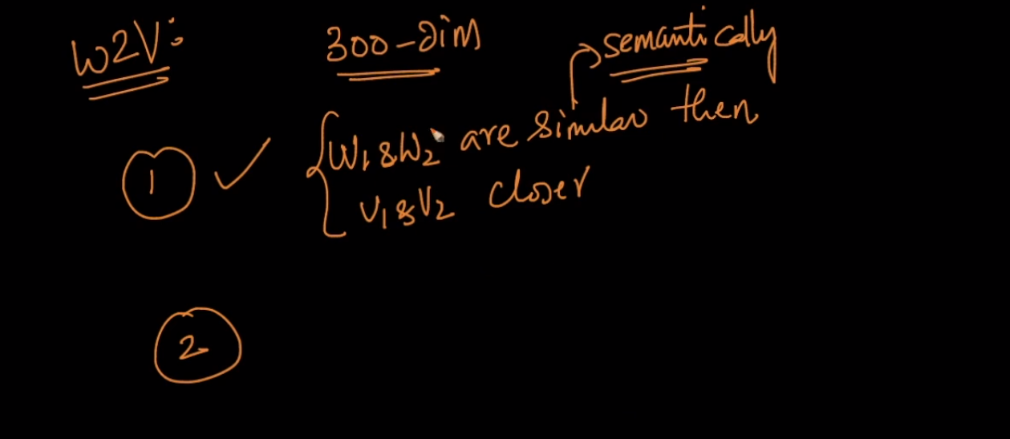 W2V:
300-dim
semantically
1
W1 & W2 are similar then
V1 & V2 closer
2